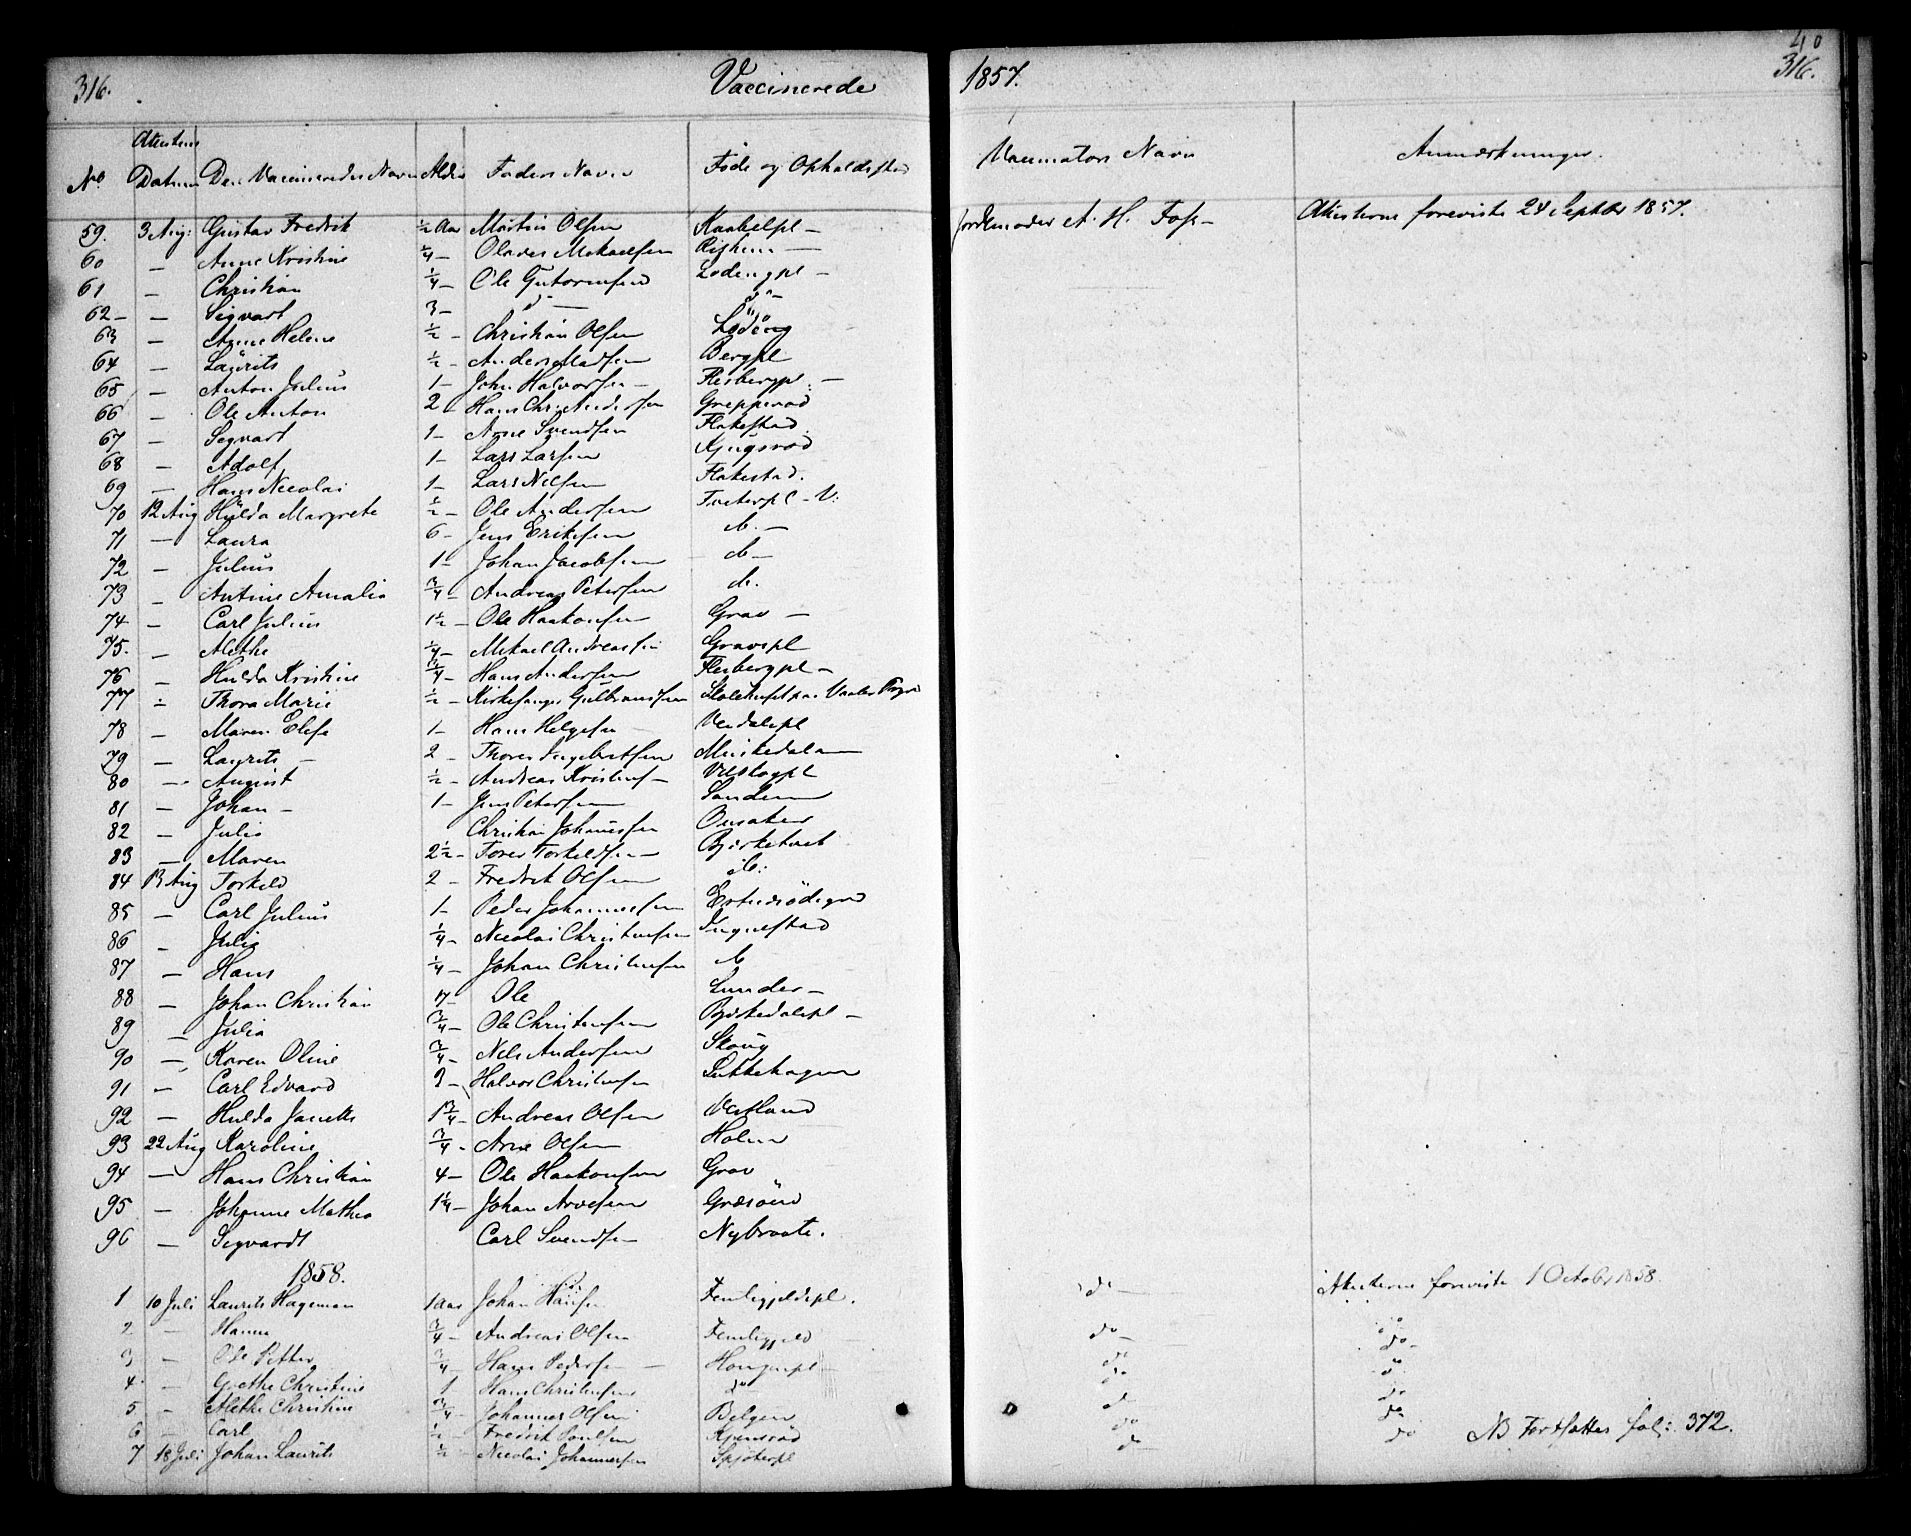 316. Vaccinerede 1857. 40
316.
No Attestens Datum Den Vaccineredes Navn Alder Faders Navn Føde og Opholdssted Vaccinators Navn Anmærkninger.
59. 3 Aug: Gustav Fredrik ½ Aar Martin Olsen Jordemoder A. H. Foss - Attesterne foreviste 24 Septbr 1857.
60 — Anne Kristine ¼ —
61 — Christian ¼ — Ole Gutormsen Lodengpl —
62 — — Sigvart 3 — do — do —
63 — Anne Helene ½ — Christian Olsen Löding
64 — Laurits ½ — Anders Madsen Bergpl
65 — Anton Julius 1 — John Halvorsen — Flesbergpl. —
66 — Ole Anton 2 Hans Chr: Andersen Grepperød
67 — Segvart 1 — Arne Svendsen Flakestad.
68 — Adolf 1 — Lars Larsen
69 — Hans Nicolai 1 — Lars Nilsen Flakestad.
70 12 Aug Hülda Margrete ½ — Ole Andersen
71 — Laura 6 — Jens Eriksen do. —
72 — Julius 1 — Johan Jacobsen do —
73 — Antine Amalia ¾ — Andreas Petersen do.
74 — Carl Julius 1½ — Ole Haakonsen Grav —
75. — Alethe ¼ — Mikael Andreassen Gravspl
76 — Hulda Kristine ¾ — Hans Andersen Flesbergpl —
77 — Thora Marie ½ — Kirkesanger Gulbrandsen
78 — Maren Elise 1 — Hans Helgesen
79 — Laurits — 2 — Thores Ingebretsen
80 — August ½ — Andreas Kristens —
81 — Johan — 1 — Jens Petersen Sanden
82 — Julie Christian Johannesen
83 — Maren 2½ — Tores Torkeldsen — Bjerketvet
84 13 Aug Torkeld 2 — Fredrik Olsen do:
85 — Carl Julius 1 — Peder Johannesen
86 — Julie ¼ — Nicolai Christensen
87 — Hans ¼ — Johan Christensen do
88 — Johan Christian Ole Lunder —
89 — Julia ¾ — Ole Christensen
90 — Karen Oline ¾ — Nils Andersen Skoug
91 — Carl Edvard — Halvor Christensen
92 — Hulda Janette 1¾ — Andreas Olsen Vestland
93 22 Aug Karoline ¾ — Arne Olsen Holm
94 — Hans Christian 4 — Ole Haakonsen Grav
95 — Johanne Mathea 1¼ — Johan Arvesen
96 — Segvardt Carl Svendsen Nybraate.
1858.
1 10 Juli Laurits Hageman 1 aar Johan Hansen Femtigjeldspl. do — Attesterne foreviste 1 Octobr 1858.
2 — Hanna ¾ — Andreas Olsen Femtigjeld do — do —
3 — Ole Petter ¾ — Hans Pedersen — do do
4 — Grethe Christine 1 Hans Christensen do do do
5 — Alethe Christine ¾ — Johannes Olsen do do
6 — Carl ½ — Fredrik Poulsen do do
7 18 Juli Johan Laurits ½ — Nicolai Johannesen do do NB Fortsattes fol: 372.